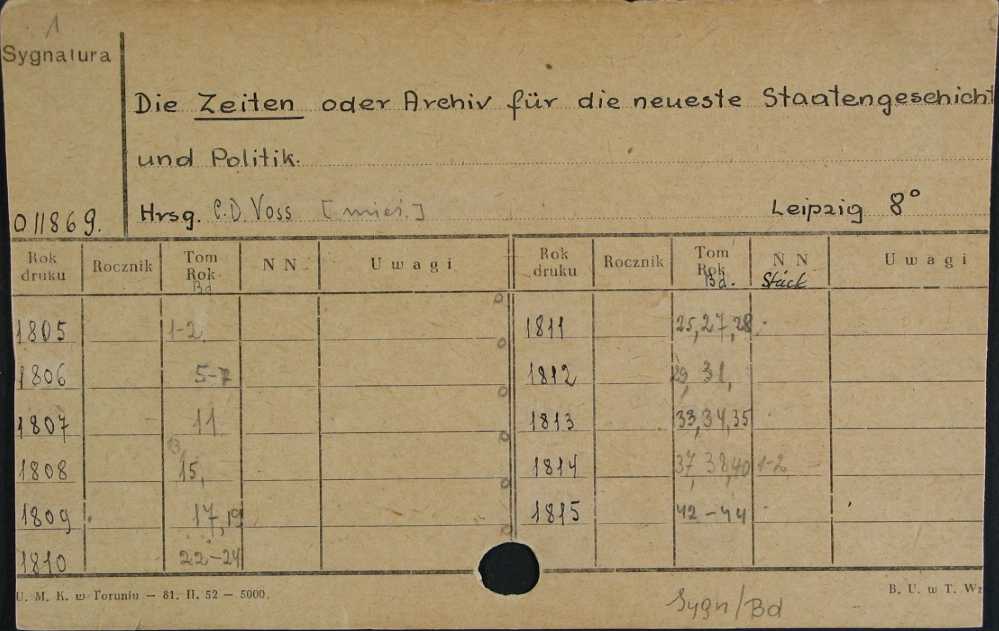 1
Sygnatura
Die Zeiten oder Archiv für die neueste Staatengeschicht
und Politik.
Hrsg. C.D. Voss [mies.] Leipzig 8°
011869.
Rok druku Rocznik Tom Rok Bd NN Uwagi Rok druku Rocznik Tom Rok Bd. NN Stück Uwagi
1805 1-2 1811 25,27,28
1806 5-7 1812 29, 31,
1807 11 1813 33,34,35
1808 13, 15, 1814 37, 38,40 1-2
1809 17,19 1815 42-44
1810 22-24
U. M. K. w Toruniu — 81. II. 52 — 5000. B. U. w T. Wz
Sygn/Bd